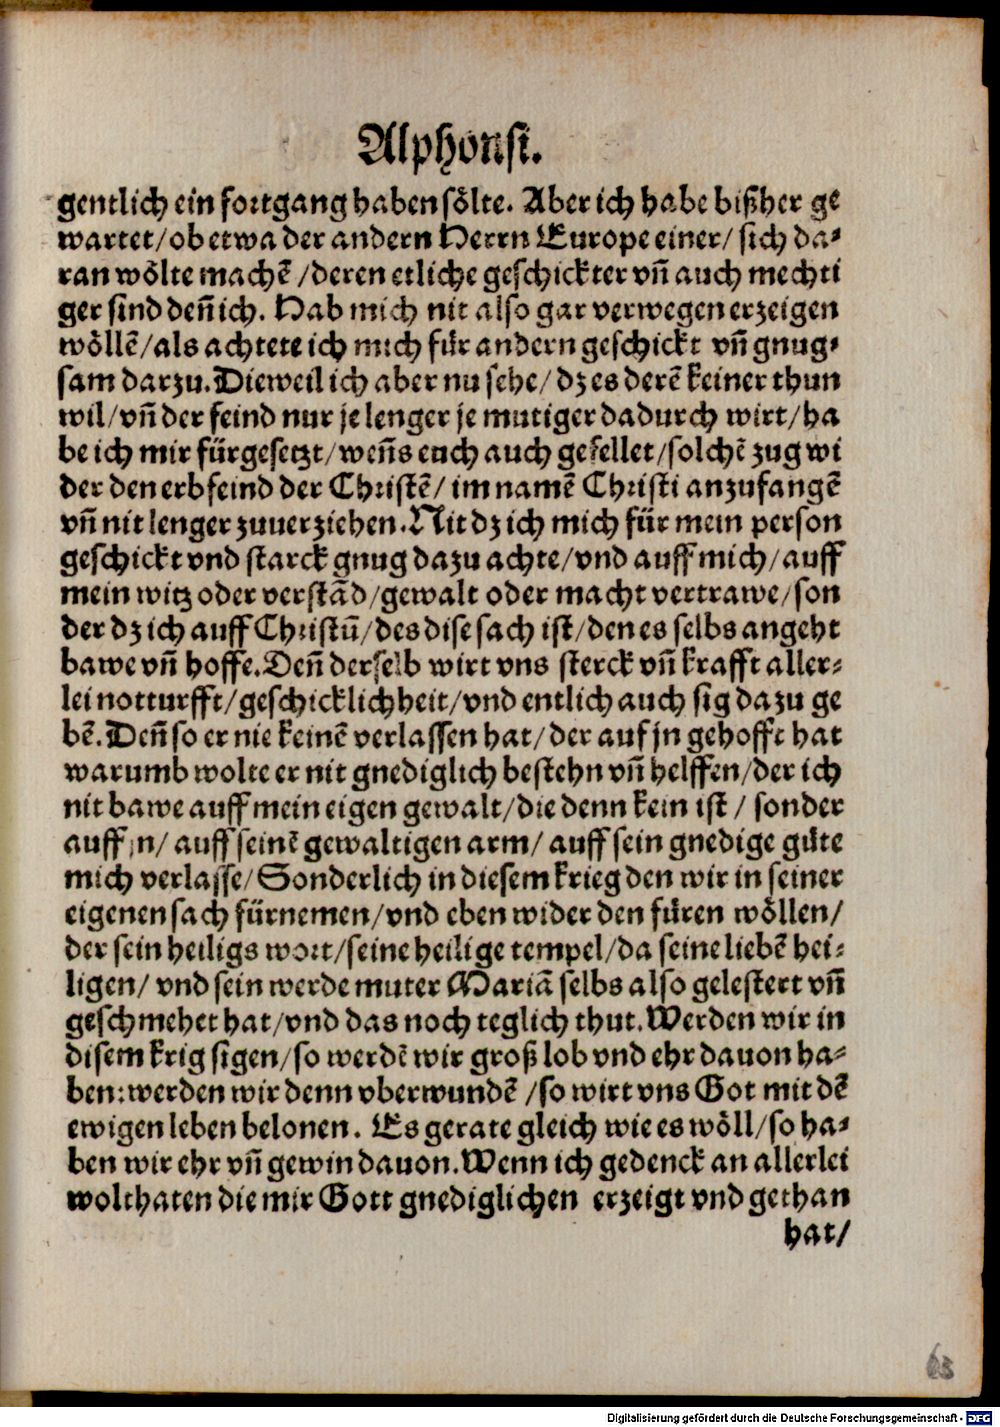 Alphonsi.
gentlich ein fortgang haben sölte. Aber ich habe bißher ge
wartet/ ob etwa der andern Herrn Europe einer/ sich da⸗
ran wölte machē /deren etliche geschickter vñ auch mechti
ger sind deñ ich. Hab mich nit also gar verwegen erzeigen
wöllē/ als achtete ich mich für andern geschickt vñ gnug⸗
sam darzu. Dieweil ich aber nu sehe/ dz es derē keiner thun
wil/ vñ der feind nur je lenger je mutiger dadurch wirt/ ha
be ich mir fürgesetzt/ weñs euch auch gefellet/ solchē zug wi
der den erbfeind der Christē/ im namē Christi anzufangē
vñ nit lenger zuuerziehen. Nit dz ich mich für mein person
geschickt vnd starck gnug dazu achte/ vnd auff mich/ auff
mein witz oder verstād/ gewalt oder macht vertrawe/ son
der dz ich auff Christū/ des dise sach ist/ den es selbs angeht
bawe vñ hoffe. Deñ derselb wirt vns sterck vñ krafft aller⸗
lei notturfft/ geschicklichheit/ vnd entlich auch sig dazu ge
bē. Deñ so er nie keinē verlassen hat/ der auf jn gehofft hat
warumb wolte er nit gnediglich bestehn vñ helffen/ der ich
nit bawe auff mein eigen gewalt/ die denn kein ist / sonder
auff jn/ auff seinē gewaltigen arm/ auff sein gnedige güte
mich verlasse/ Sonderlich in diesem krieg den wir in seiner
eigenen sach fürnemen/ vnd eben wider den füren wöllen/
der sein heiligs wort/ seine heilige tempel/ da seine liebē hei⸗
ligen/ vnd sein werde muter Mariā selbs also gelestert vñ
geschmehet hat/ vnd das noch teglich thut. Werden wir in
disem krig sigen/ so werdē wir groß lob vnd ehr dauon ha⸗
ben: werden wir denn vberwundē /so wirt vns Got mit dē
ewigen leben belonen. Es gerate gleich wie es wöll/ so ha⸗
ben wir ehr vñ gewin dauon. Wenn ich gedenck an allerlei
wolthaten die mir Gott gnediglichen erzeigt vnd gethan
hat/
63
Digitalisierung gefördert durch die Deutsche Forschungsgemeinschaft - DFG